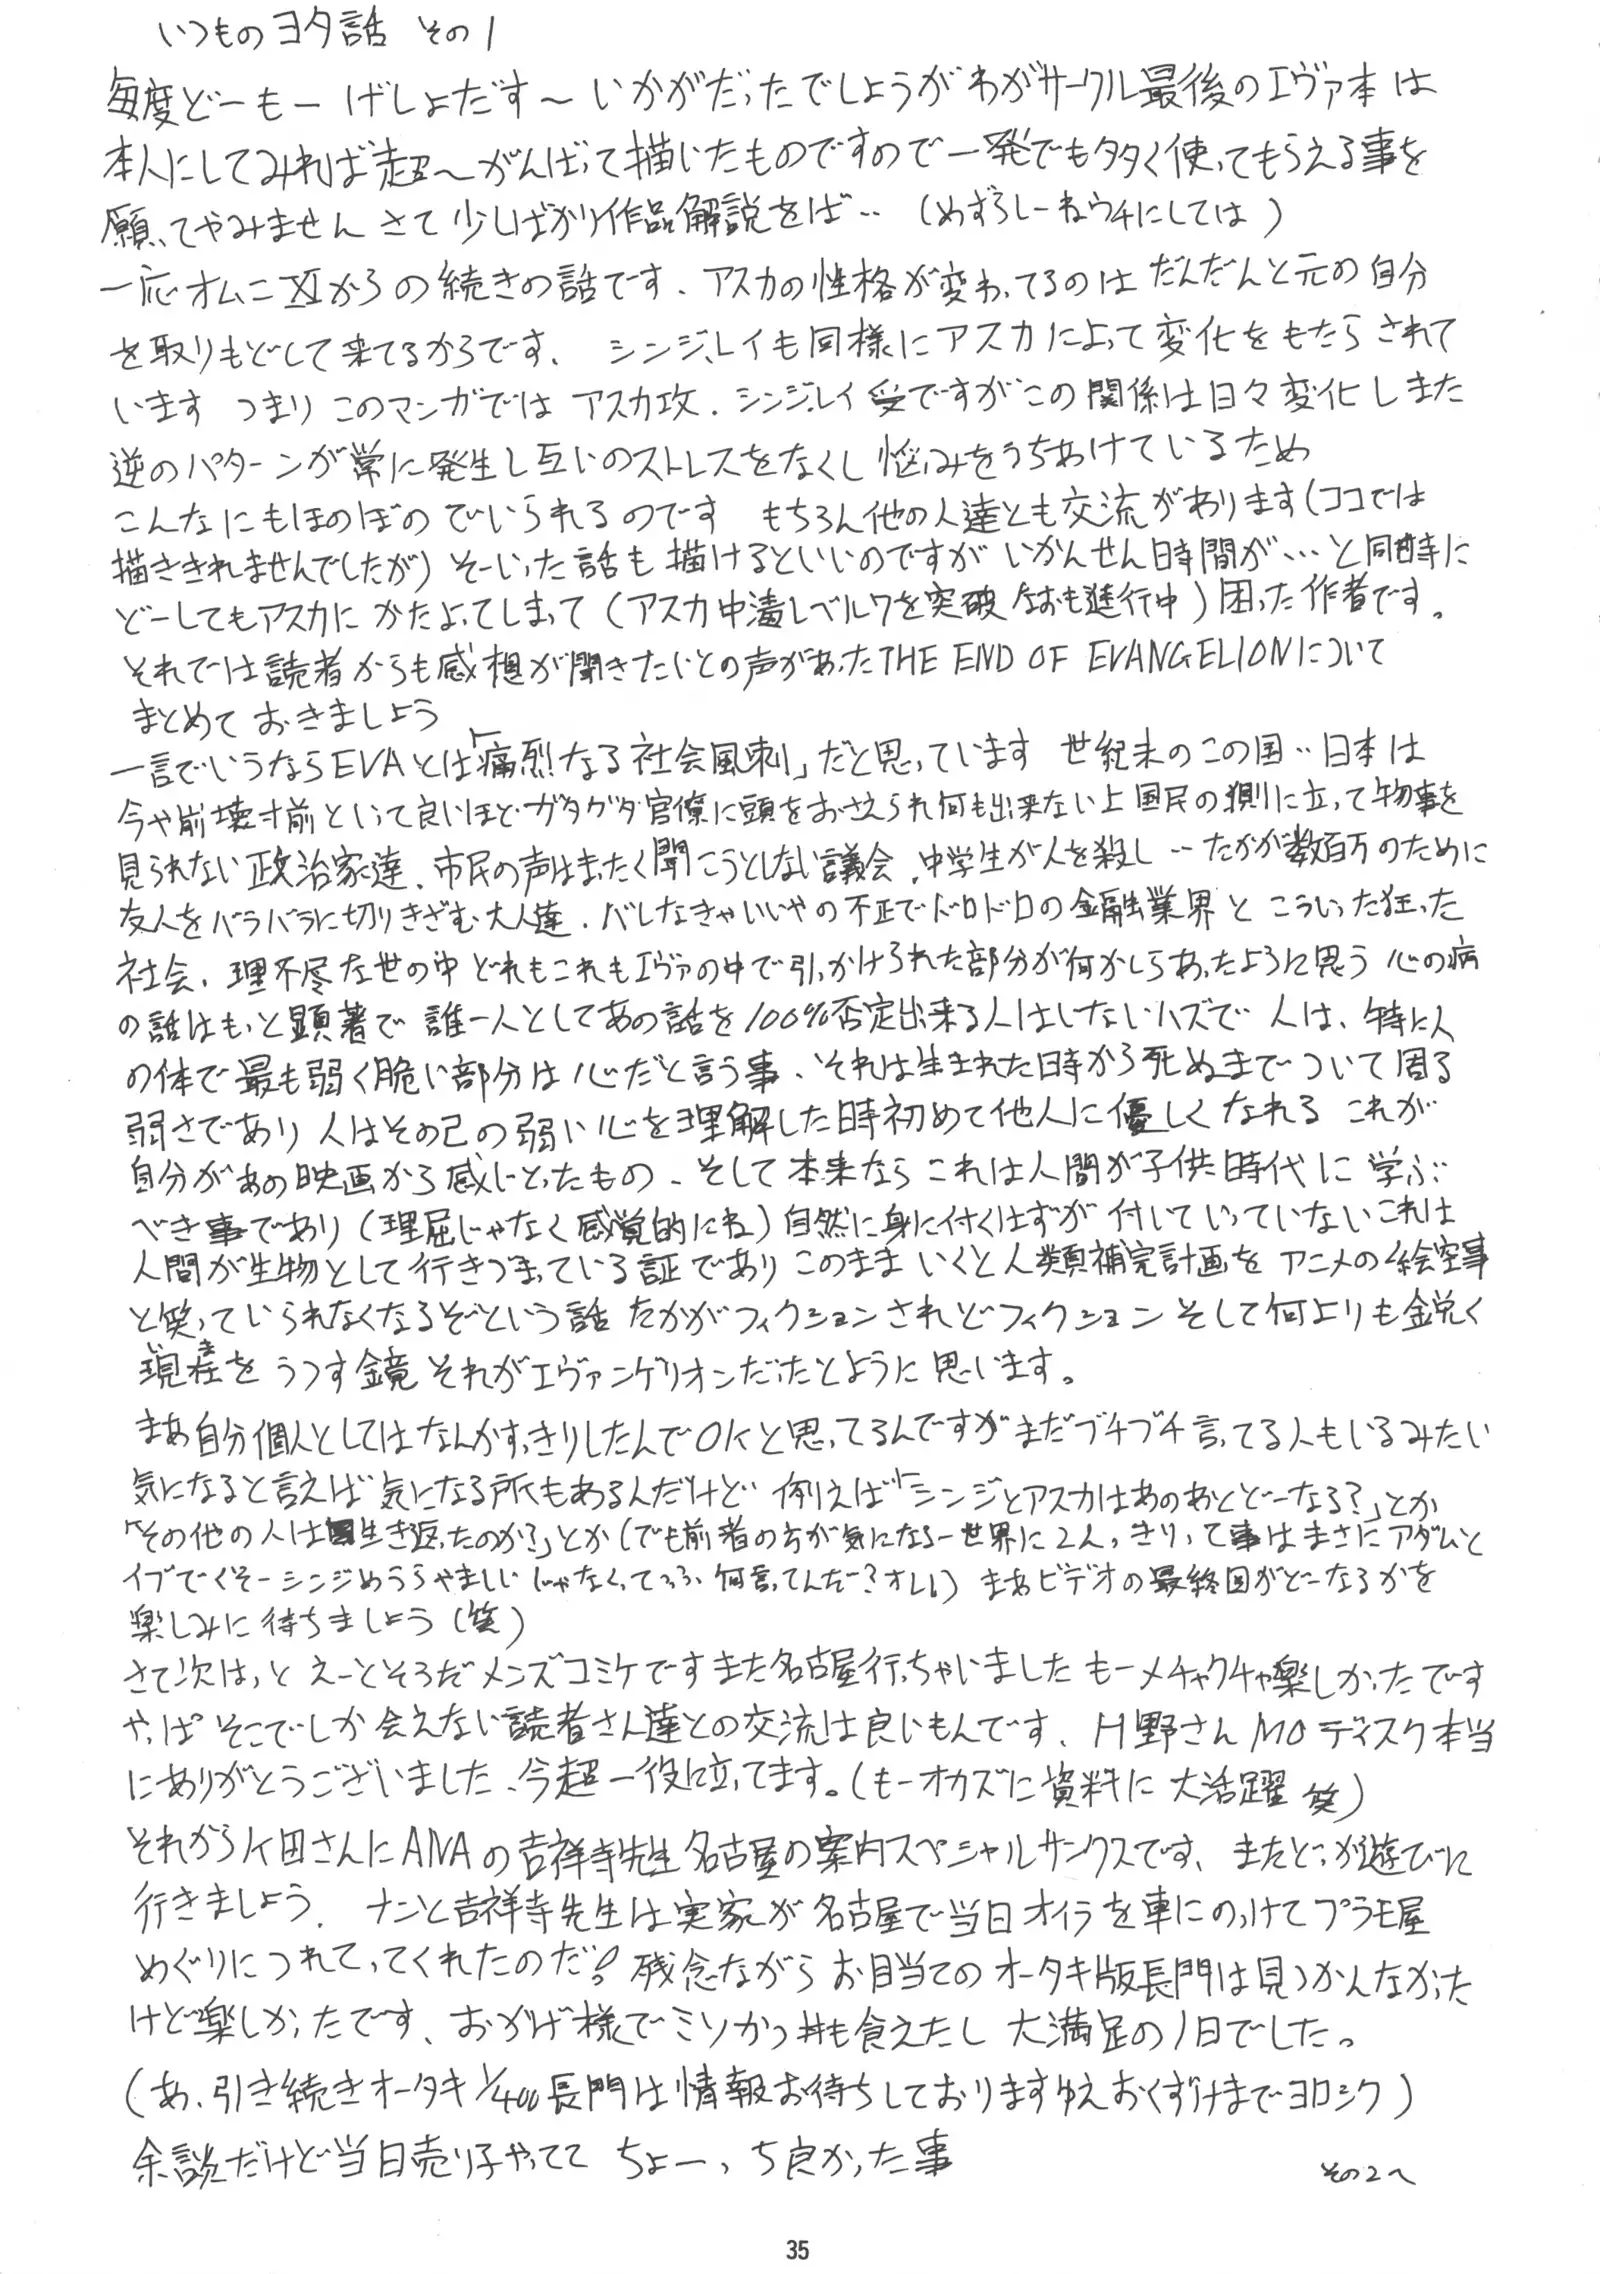 いつものヨタ話 その1
毎度どーもー げしょだす〜 いかがだったでしょうが わがサークル最後のエヴァ本は
本人にしてみれば超〜がんばって描いたものですので一発でも多く使ってもらえる事を
願ってやみません さて少しばかり作品解説をば‥ (めずらしーねウチにしては)
一応オムニⅪからの続きの話です、アスカの性格が変わってるのは だんだんと元の自分
を取りもどして来てるからです、 シンジ、レイも同様にアスカによって変化をもたらされて
います つまりこのマンガでは アスカ攻、シンジ、レイ受ですがこの関係は日々変化しまた
逆のパターンが常に発生し互いのストレスをなくし悩みをうちあけているため
こんなにもほのぼのでいられるのです もちろん他の人達とも交流があります(ココでは
描ききれませんでしたが) そーいった話も描けるといいのですが いかんせん時間が…と同時に
どーしてもアスカに かたよってしまって (アスカ中毒レベル7を突破 なおも進行中) 困った作者です。
それでは読者からも感想が聞きたいとの声があったTHE END OF EVANGELIONについて
まとめておきましょう
一言でいうならEVAとは「痛烈なる社会風刺」だと思っています 世紀末のこの国‥日本は
今や崩壊寸前といって良いほどガタガタ官僚に頭をおさえられ何も出来ない上国民の側に立って物事を
見られない政治家達、市民の声はまったく聞こうとしない議会、中学生が人を殺し‥たかが数百万のために
友人をバラバラに切りきざむ大人達、バレなきゃいいやの不正でドロドロの金融業界と こういった狂った
社会、理不尽な世の中 どれもこれもエヴァの中で引っかけられた部分が何かしらあったように思う 心の病
の話はもっと顕著で 誰一人としてあの話を100%否定出来る人はしないハズで 人は、特に人
の体で最も弱く脆い部分は心だと言う事、それは生まれた時から死ぬまでついて周る
弱さであり 人はその己の弱い心を理解した時初めて他人に優しくなれる これが
自分があの映画から感じとったもの、そして本来ならこれは人間が子供時代に学ぶ
べき事であり(理屈じゃなく感覚的にね)自然に身に付くはずが 付いていっていない これは
人間が生物として行きづまっている証であり このままいくと人類補完計画を アニメの絵空事
と笑っていられなくなるぞという話 たかがフィクションされどフィクション そして何よりも鋭く
現在をうつす鏡 それがエヴァンゲリオンだったとように思います。
まあ自分個人としてはなんかすっきりしたんでOKと思ってるんですがまだブチブチ言ってる人もいるみたい
気になると言えば気になる所もあるんだけど 例えば「シンジとアスカはあのあとどーなる?」とか
「その他の人は生き返ったのか?」とか(でも前者の方が気になるー世界に2人っきりって事はまさにアダムと
イブでくそーシンジめうらやましい じゃなくってっ 何言ってんだー?オレ!) まあビデオの最終回がどーなるかを
楽しみに待ちましょう(笑)
さて次はっと えーとそうだメンズコミケです また名古屋行っちゃいました もーメチャクチャ楽しかったです
やっぱそこでしか会えない読者さん達との交流は良いもんです、H野さんMOディスク本当
にありがとうございました、今超一役に立ってます。(もーオカズに資料に大活躍 笑)
それからK田さんにANAの吉祥寺先生名古屋の案内スペシャルサンクスです、またどっか遊びに
行きましょう、 ナンと吉祥寺先生は実家が名古屋で当日オイラを車にのっけてプラモ屋
めぐりにつれてってくれたのだ! 残念ながらお目当てのオータキ版長門は見つかんなかった
けど楽しかったです、おかげ様でミソかつ丼も食えたし 大満足の1日でした。
(あ、引き続きオータキ1/400長門は情報お待ちしておりますゆえおくずけまでヨロシク)
余談だけど当日売り子やってて ちょーっち良かった事
その2へ
35